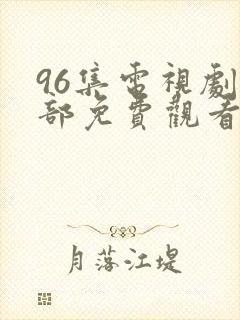 96集電視劇
部免費觀看
月落江堤